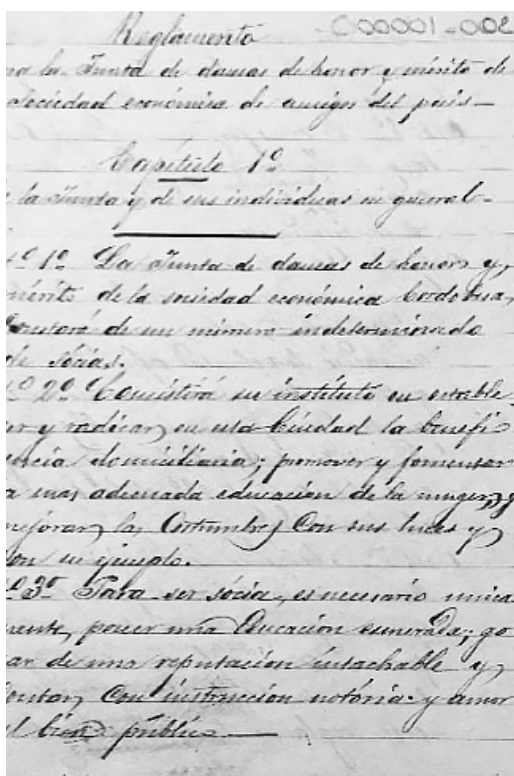 Reglamento
ra la Junta de damas de honor y mérito de
Sociedad económica de amigos del país—
Capítulo 1º
la Junta y de sus individuas en general.
1º La Junta de damas de honor y
mérito de la sociedad económica Cordobesa,
Constará de un número indeterminado
de sócias.
2º Consistirá su instituto en estable
er y radicar en esta Ciudad la benefi
encia domiciliaria; promover y fomentar
a mas adecuada educacion de la muger, y
mejorar las Costumbres Con sus luces y
on su ejemplo.
3º Para ser sócia, es necesario unica
mente, poseer una Educacion esmerada; go
ar de una reputacion intachable y
Contar, Con instruccion notória y amor
al bien público—